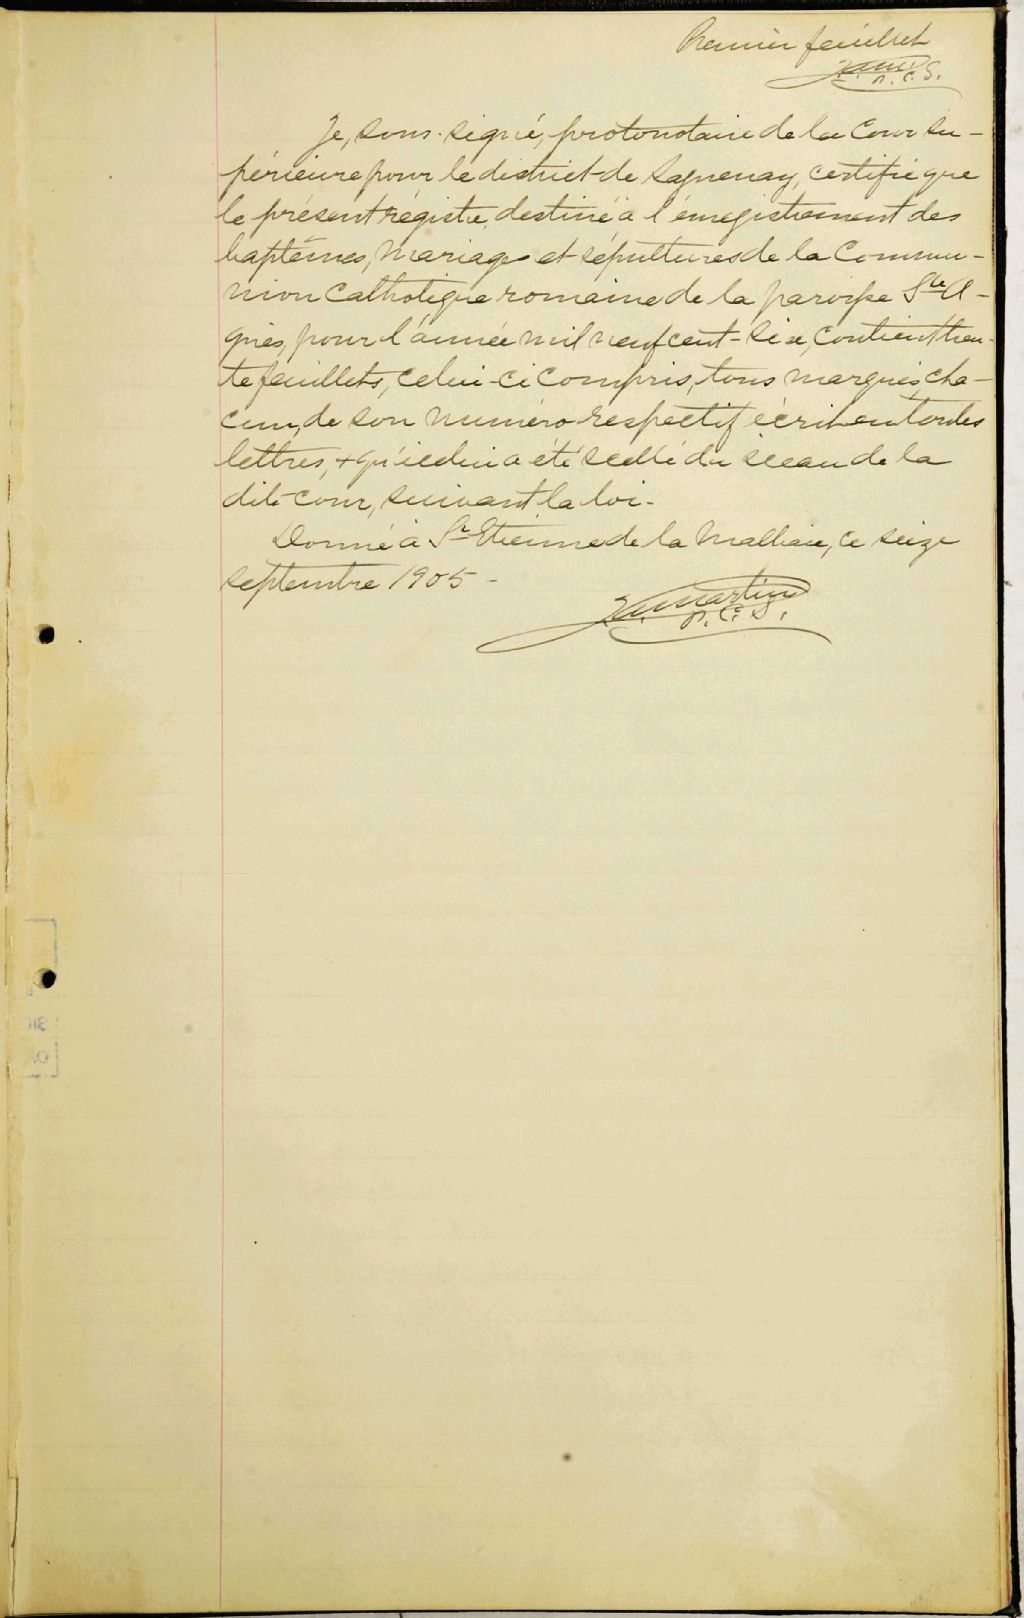 Premier feuillet
P. C. S.
Je, sous-signé, protonotaire de la Cour su-
périeure pour le district de Saguenay, certifie que
le présent régistre, destiné à l'énregistrement des
baptêmes, mariages et sépultures de la Commu-
nion Catholique romaine de la paroisse Ste A-
gnès, pour l'année mil neuf cent-six, contient tren-
te feuillets, celui-ci compris, tous marqués, cha-
cun, de son numéro respectif écrit en toutes
lettres, + qu'icelui a été scellé du sceau de la
dite cour, suivant la loi.
Donné à St Etienne de la Malbaie, ce seize
septembre 1905 -
Martin
P. C. S.